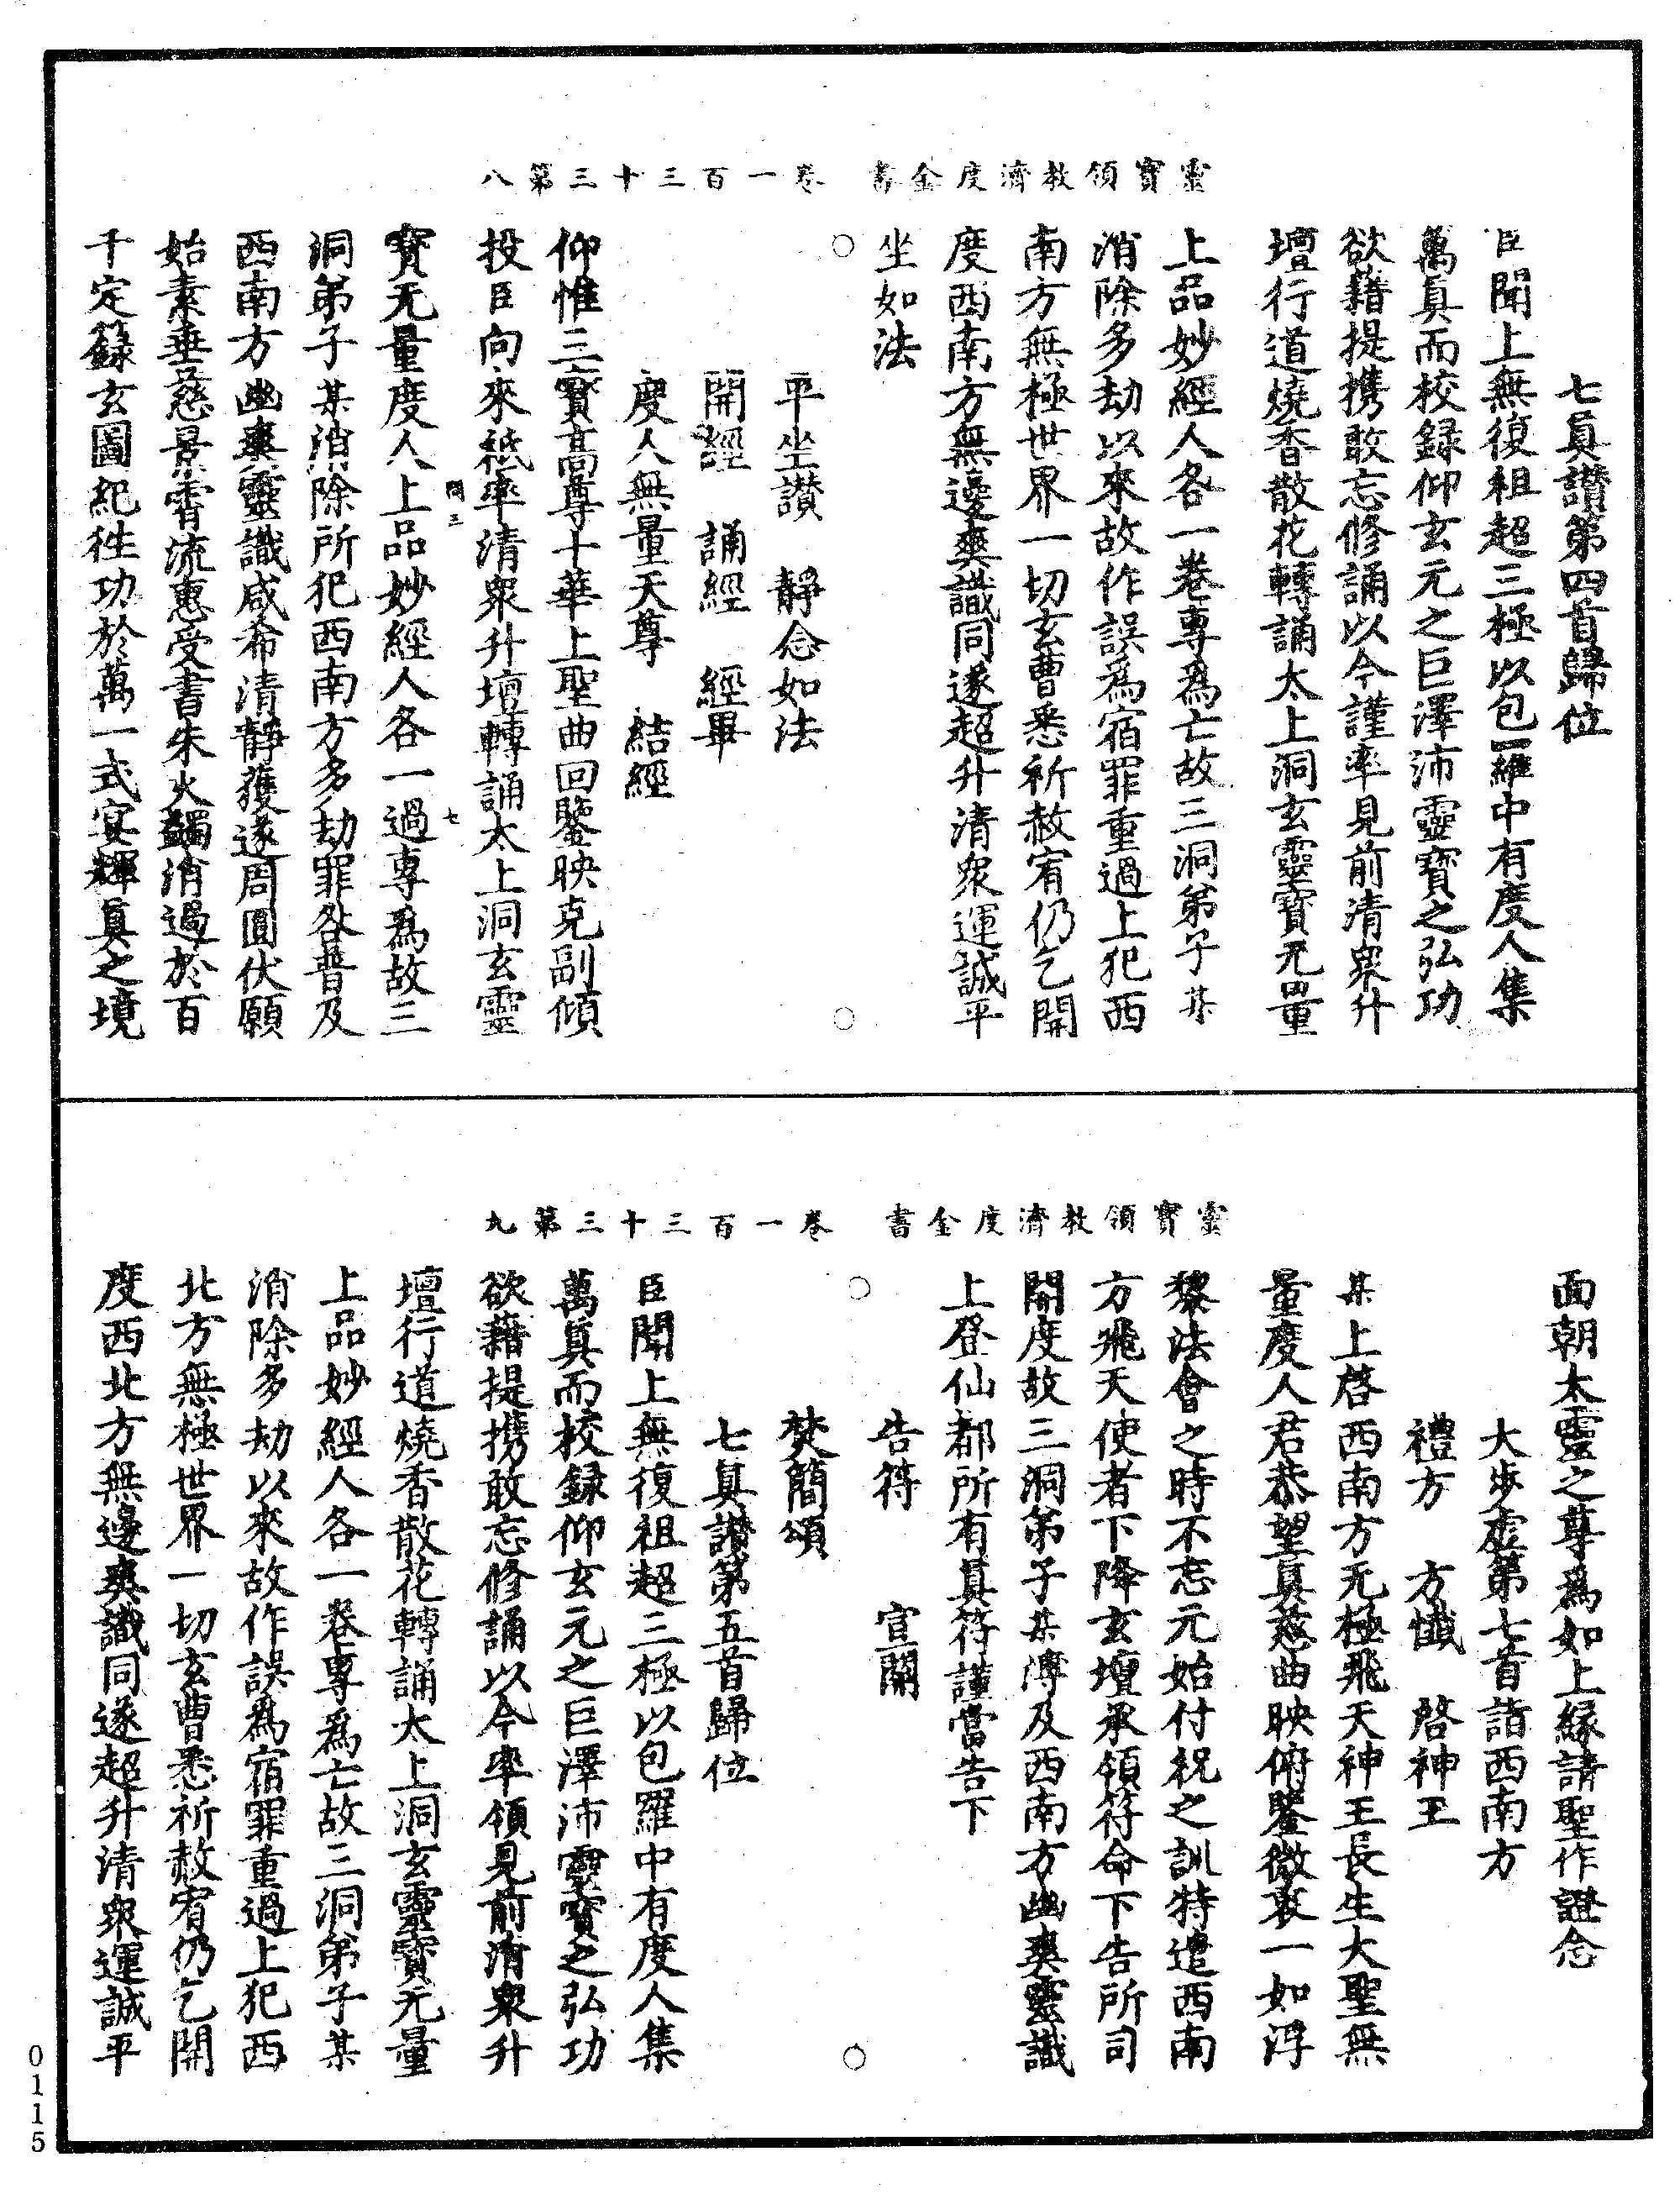 靈寶領教濟度金書　卷一百三十三第八
七眞讃第四首歸位
臣聞上無復祖超三極以包羅中有度人集
萬眞而校録仰玄元之巨澤沛靈寶之弘功
欲藉提携敢忘修誦以今謹率見前清衆升
壇行道燒香散花轉誦太上洞玄靈寶无量
上品妙經人各一卷專爲亡故三洞弟子某
消除多劫以來故作誤爲宿罪重過上犯西
南方無極世界一切玄曹悉祈赦宥仍乞開
度西南方無邊爽識同遂超升清衆運誠平
坐如法
平坐讃　靜念如法
開經　誦經　經畢
度人無量天尊　結經
仰惟三寶高尊十華上聖曲回鑒映克副傾
投臣向來祗率清衆升壇轉誦太上洞玄靈
寶无量度人上品妙經人各一過專爲故三
問三　七
洞弟子某消除所犯西南方多劫罪咎普及
西南方幽爽靈識咸希清靜獲遂周圓伏願
始素垂慈景霄流惠受書朱火蠲消過於百
千定籙玄圖紀徃功於萬一式宴輝眞之境
靈寶領教濟度金書　卷一百三十三第九
面朝太靈之尊爲如上縁請聖作證念
大步虚第七首詣西南方
禮方　方懺　啓神王
某上啓西南方无極飛天神王長生大聖無
量度人君恭望眞慈曲映俯鑒微衷一如浮
黎法會之時不忘元始付祝之訓特遣西南
方飛天使者下降玄壇承領符命下告所司
開度故三洞弟子某溥及西南方幽爽靈識
上登仙都所有眞符謹當告下
告符　宣關
焚簡頌
七眞讃第五首歸位
臣聞上無復祖超三極以包羅中有度人集
萬眞而校録仰玄元之巨澤沛靈寶之弘功
欲藉提携敢忘修誦以今率領見前清衆升
壇行道燒香散花轉誦太上洞玄靈寶无量
上品妙經人各一卷專爲亡故三洞弟子某
消除多劫以來故作誤爲宿罪重過上犯西
北方無極世界一切玄曹悉祈赦宥仍乞開
度西北方無邊爽識同遂超升清衆運誠平
0115